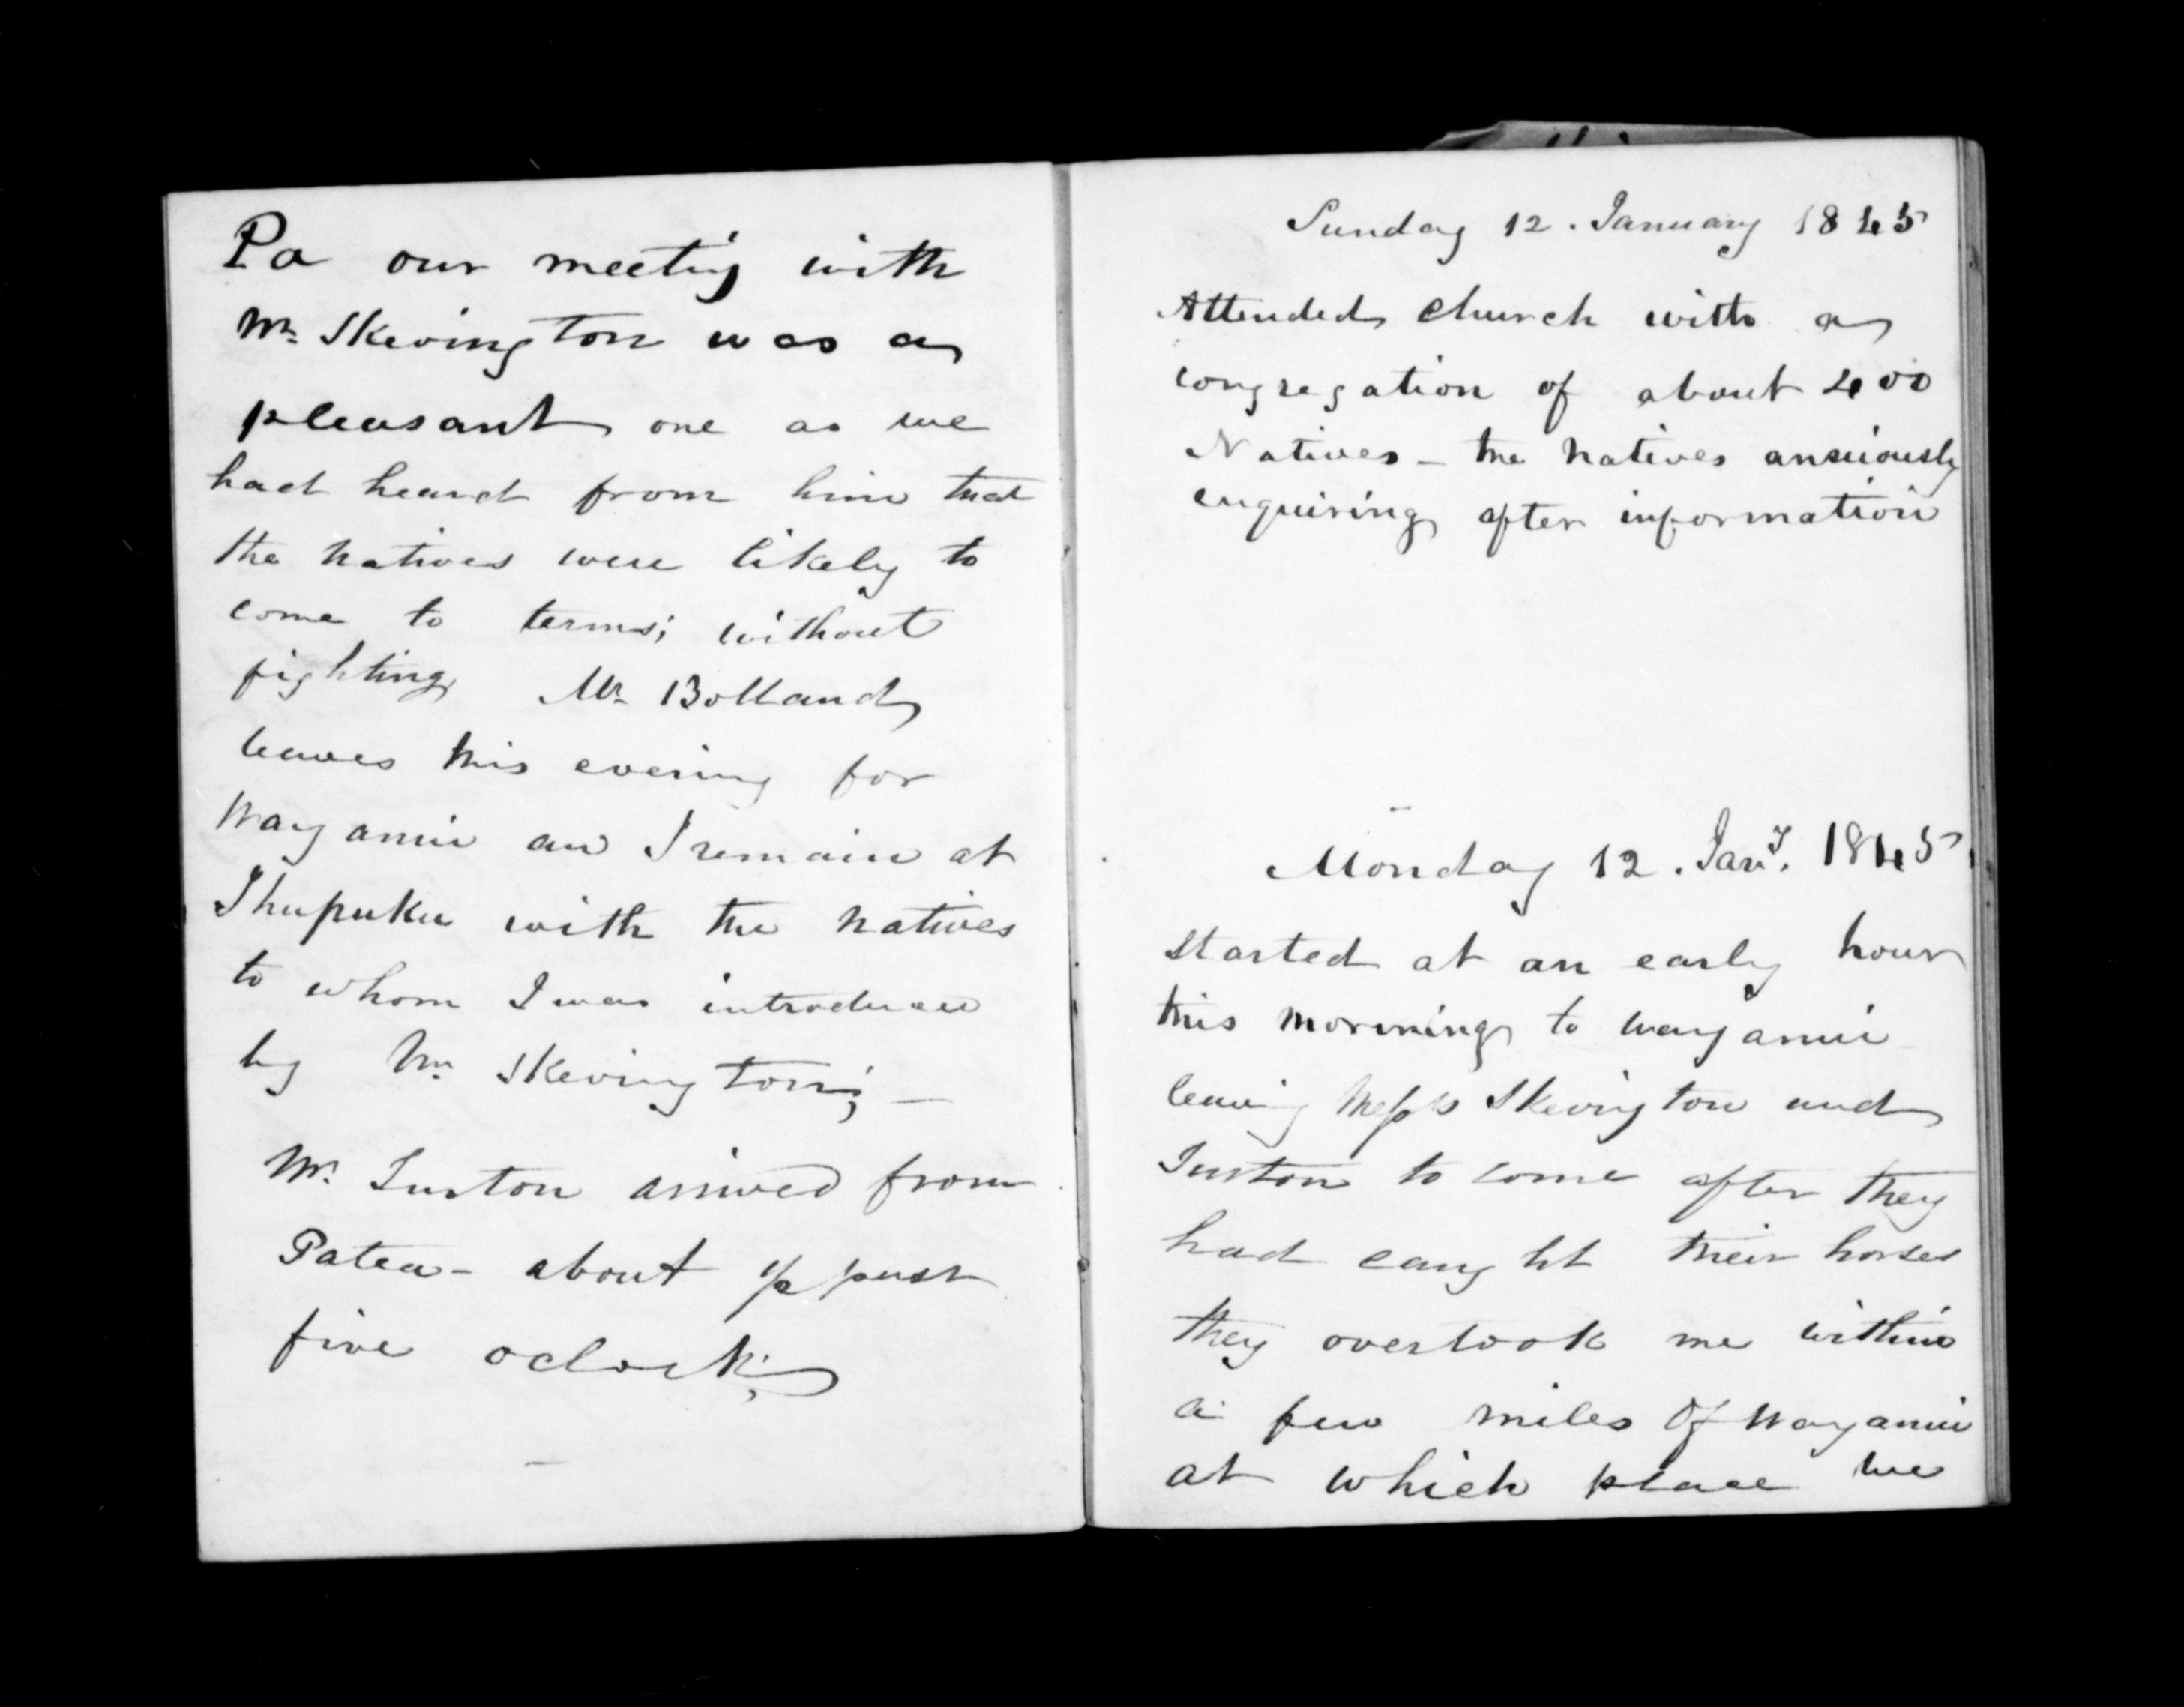 Pa our meeting with
Mr Skevington was a
pleasant one as we
had heard from him that
the natives were likely to
come to terms; without
fighting Mr Bolland
leaves this evening for
Wayamii and I remain at
Ihupuku with the natives
to whom I was introduced
by Mr Skevington; —
Mr. Turton arrived from
Patea - about 1/2 past
five oclock;
Sunday 12. January 1845
Attended church with a
congregation of about 400
Natives - the natives anxiously
enquiring after information
Monday 12. Jany. 1845
started at an early hour
this morning to Wayamii
leaving Messrs Skevington and
Turton to come after they
had caught their horses
they overtook me within
a few miles Of Wayamii
at which place we